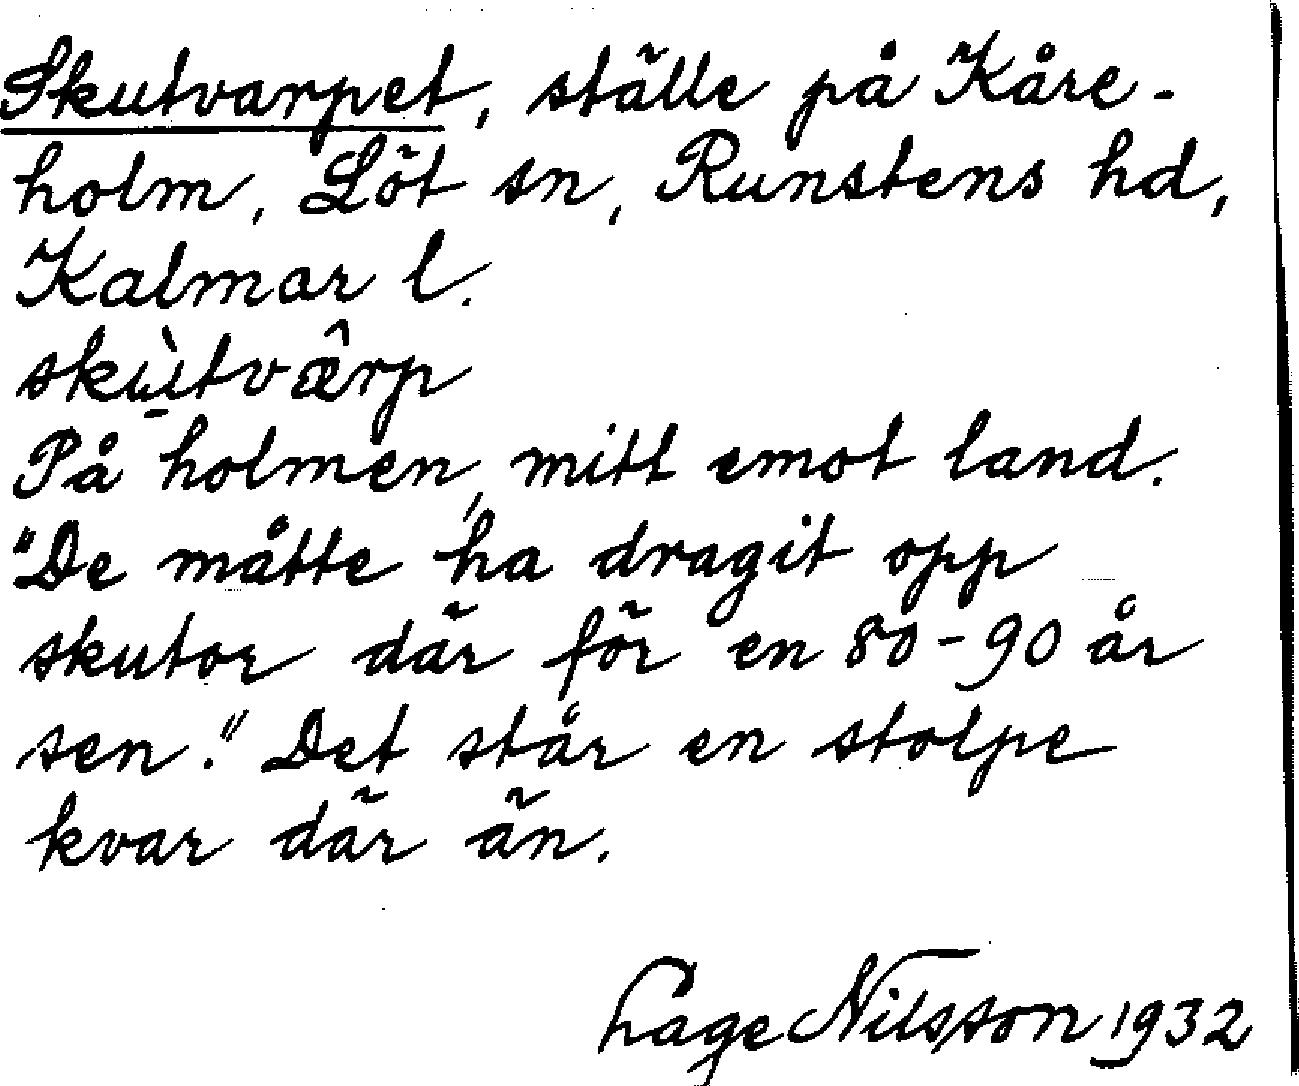 Skutvarpet, ställe på Kåre-
holm, Löt sn, Runstens hd,
Kalmar l.
skù̱tvæ̂rp
På holmen, mitt emot land.
"De måtte ha dragit opp
skutor där för en 80-90 år
sen." Det står en stolpe
kvar där än.
Lage Nilsson 1932